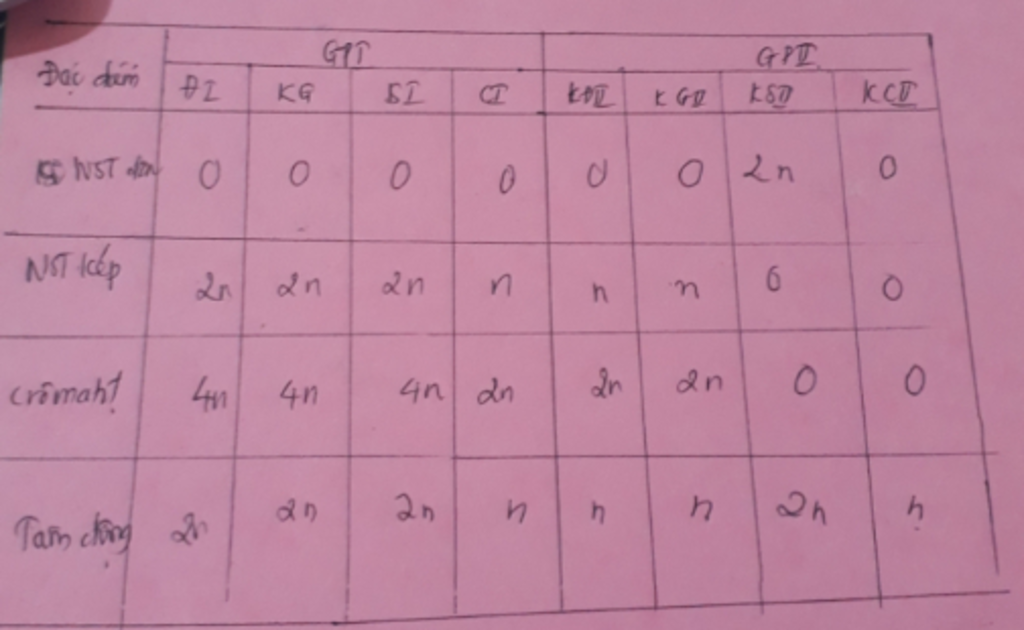 GPI GPII
Đặc điểm ĐI KG SI CI KĐII KGII KSII KCII
NST đơn 0 0 0 0 0 0 2n 0
NST kép 2n 2n 2n n n n 0 0
crômatit 4n 4n 4n 2n 2n 2n 0 0
Tâm động 2n 2n 2n n n n 2n n